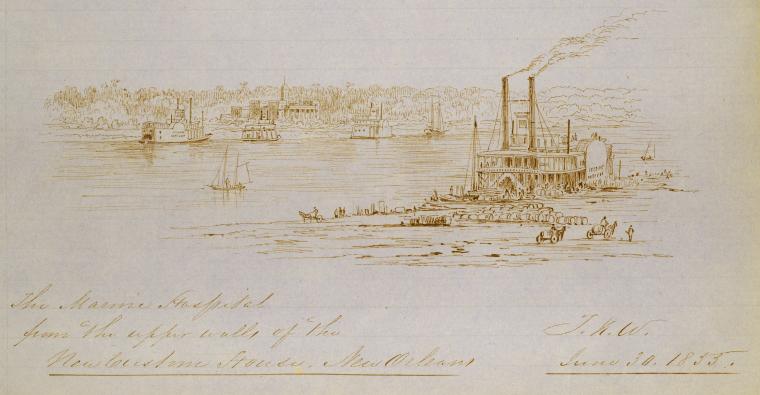 The Marine Hospital
from the upper walls of the
New Custom House. New Orleans
T. K. W.
June 30. 1855.